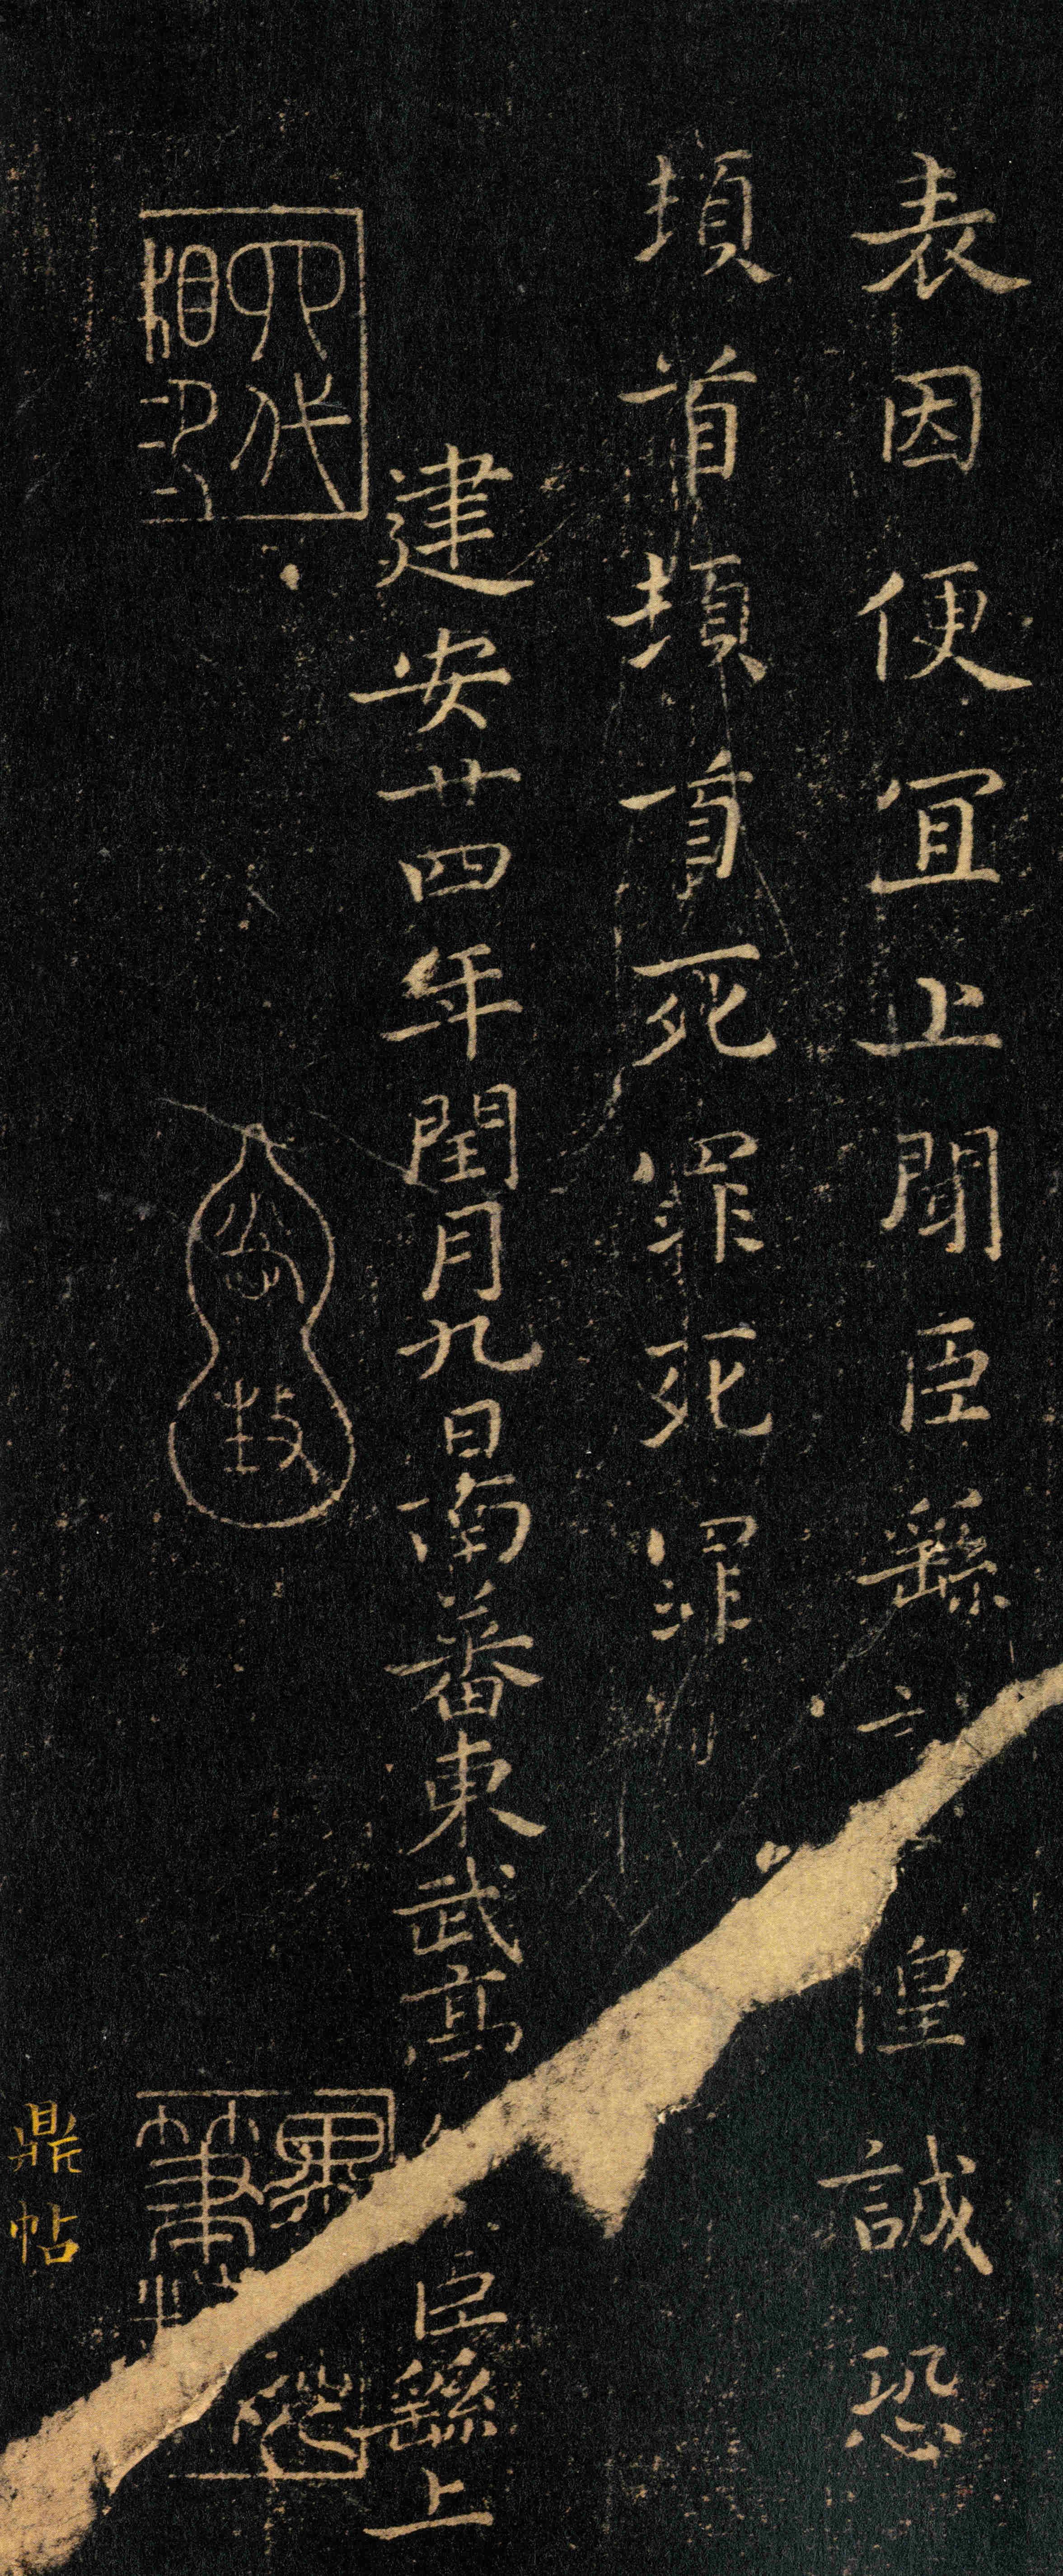 表因便宜上聞臣繇惶誠恐
頓首頓首死罪死罪
建安廿四年閏月九日南蕃東武亭臣繇上
四代相印
鼎帖